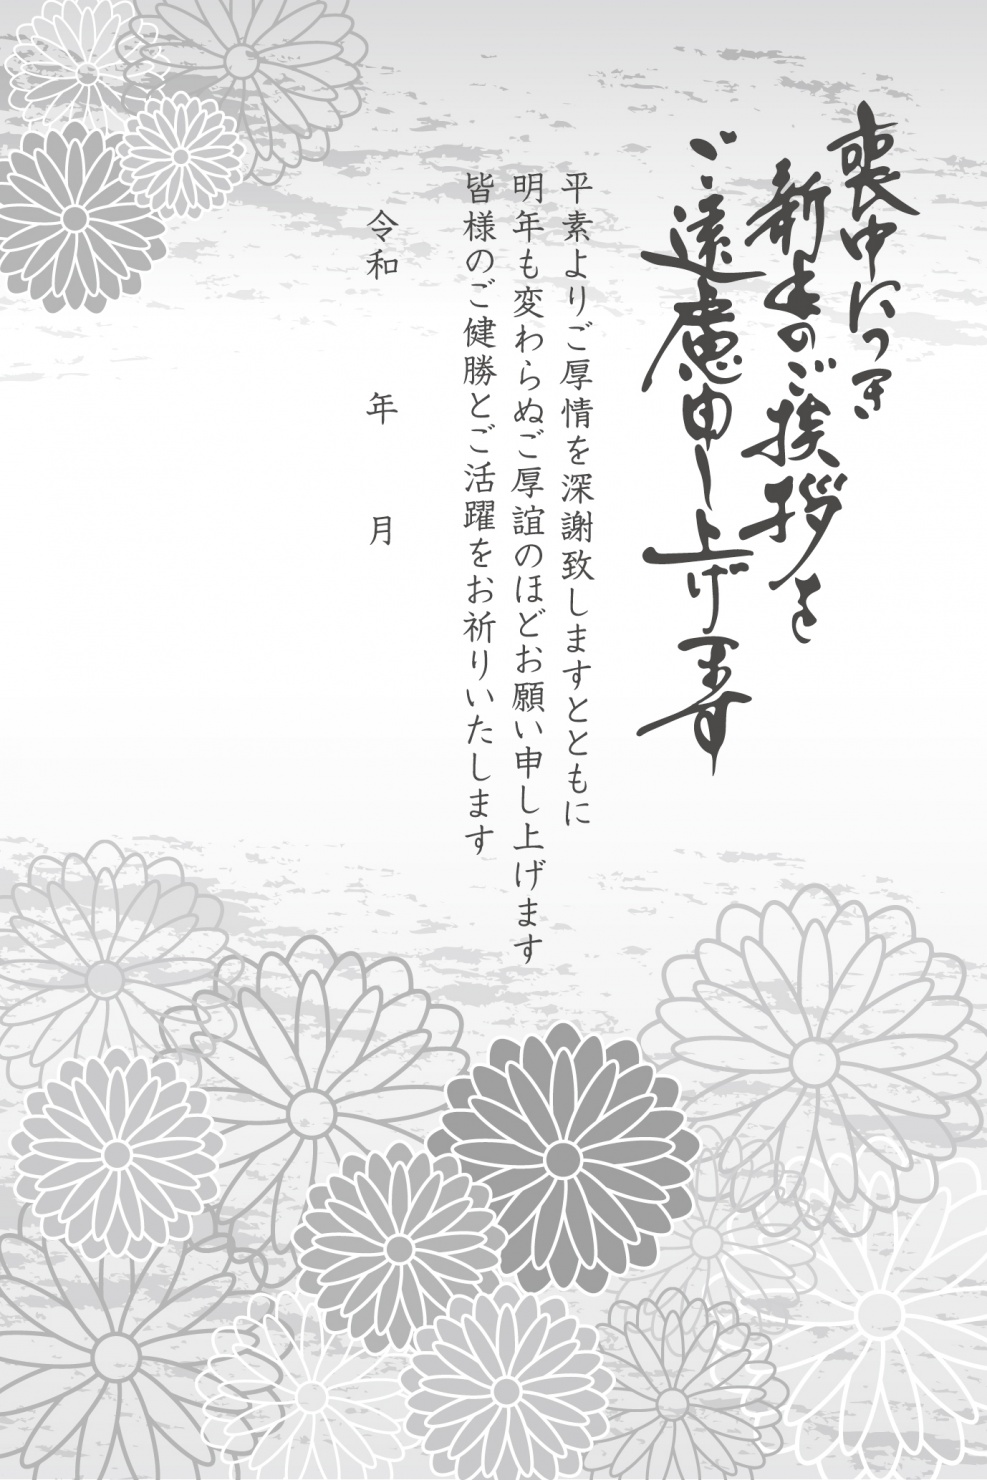 喪中につき
新年のご挨拶を
ご遠慮申し上げます
平素よりご厚情を深謝致しますとともに
明年も変わらぬご厚誼のほどお願い申し上げます
皆様のご健勝とご活躍をお祈りいたします
令和　　年　　月